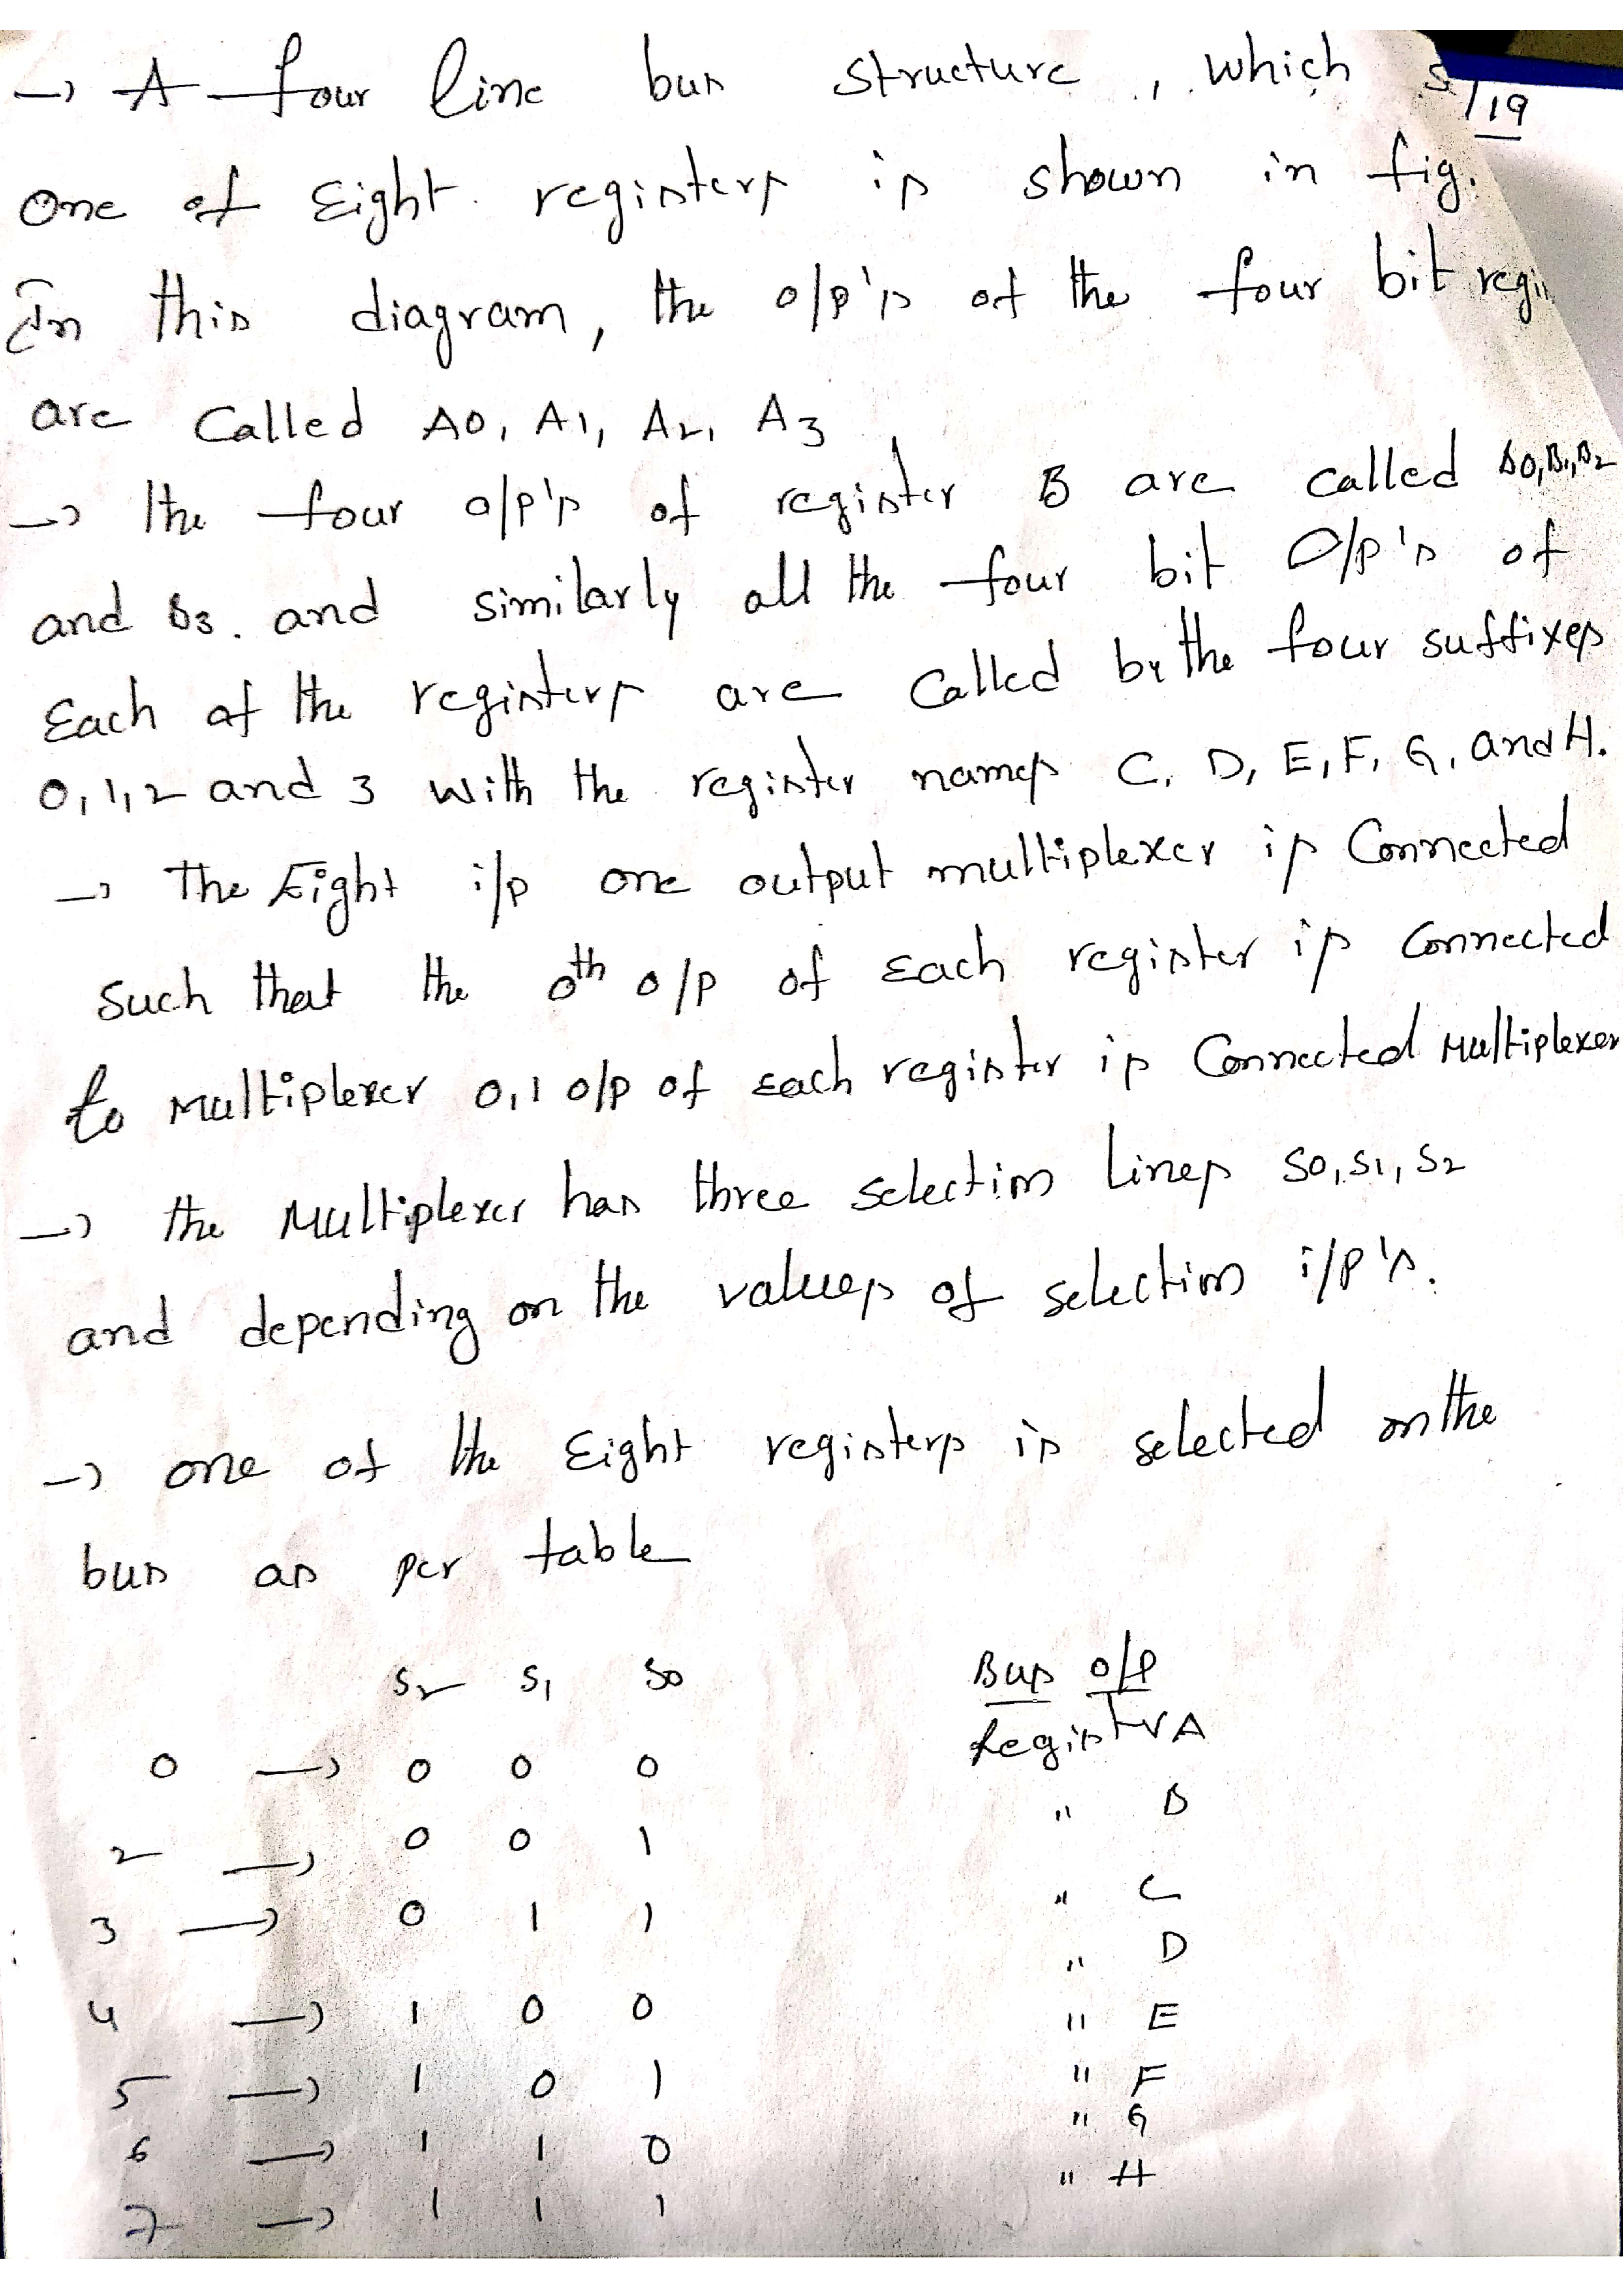 → A four line bus structure, which s
/19
One of Eight registers is shown in fig.
In this diagram, the o/p's of the four bit regi
are Called A0, A1, A2, A3
→ The four o/p's of register B are called B0, B1, B2
and B3. and similarly all the four bit O/p's of
Each of the registers are Called by the four suffixes
0, 1, 2 and 3 with the register names C, D, E, F, G, and H.
→ The Eight i/p one output multiplexer is Connected
Such that the 0th o/p of Each register is Connected
to Multiplexer 0, 1 o/p of Each register is Connected Multiplexer
→ the Multiplexer has three selection Lines S0, S1, S2
and depending on the values of selection i/p's.
→ one of the Eight registers is selected on the
bus as per table
S2 S1 S0 Bus o/p
0 → 0 0 0 Register A
2 → 0 0 1 " B
3 → 0 1 1 " C
" D
4 → 1 0 0 " E
5 → 1 0 1 " F
6 → 1 1 0 " G
7 → 1 1 1 " H